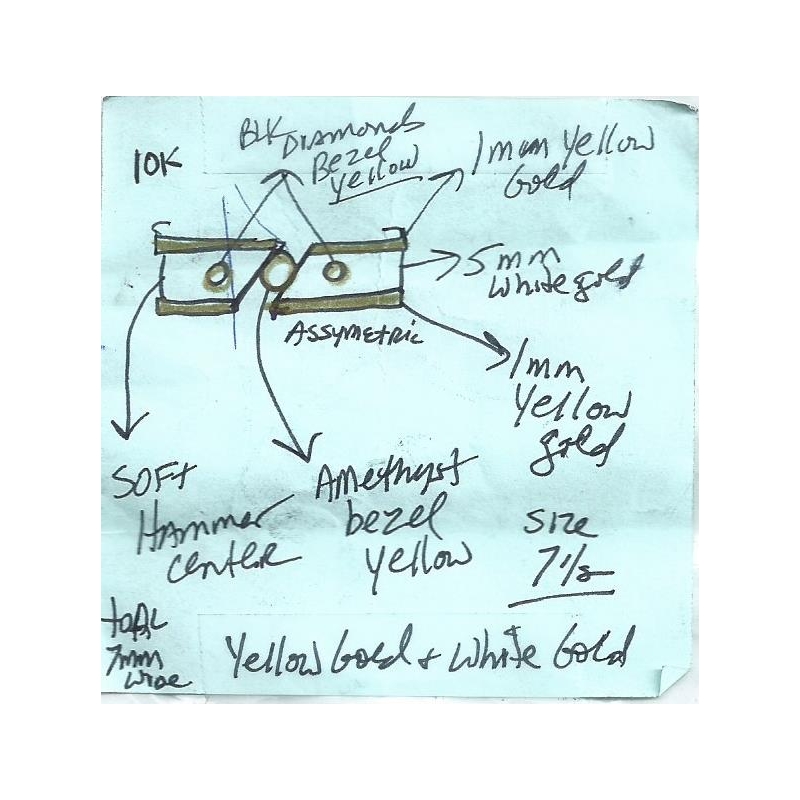 10K
BLK DIAMONDS
Bezel
yellow
1mm yellow
Gold
5mm
white gold
ASSYMETRIC
1mm
yellow
gold
SOFT
HAMMER
CENTER
Amethyst
bezel
yellow
SIZE
7 1/2
total
7mm
WIDE
Yellow Gold + White Gold